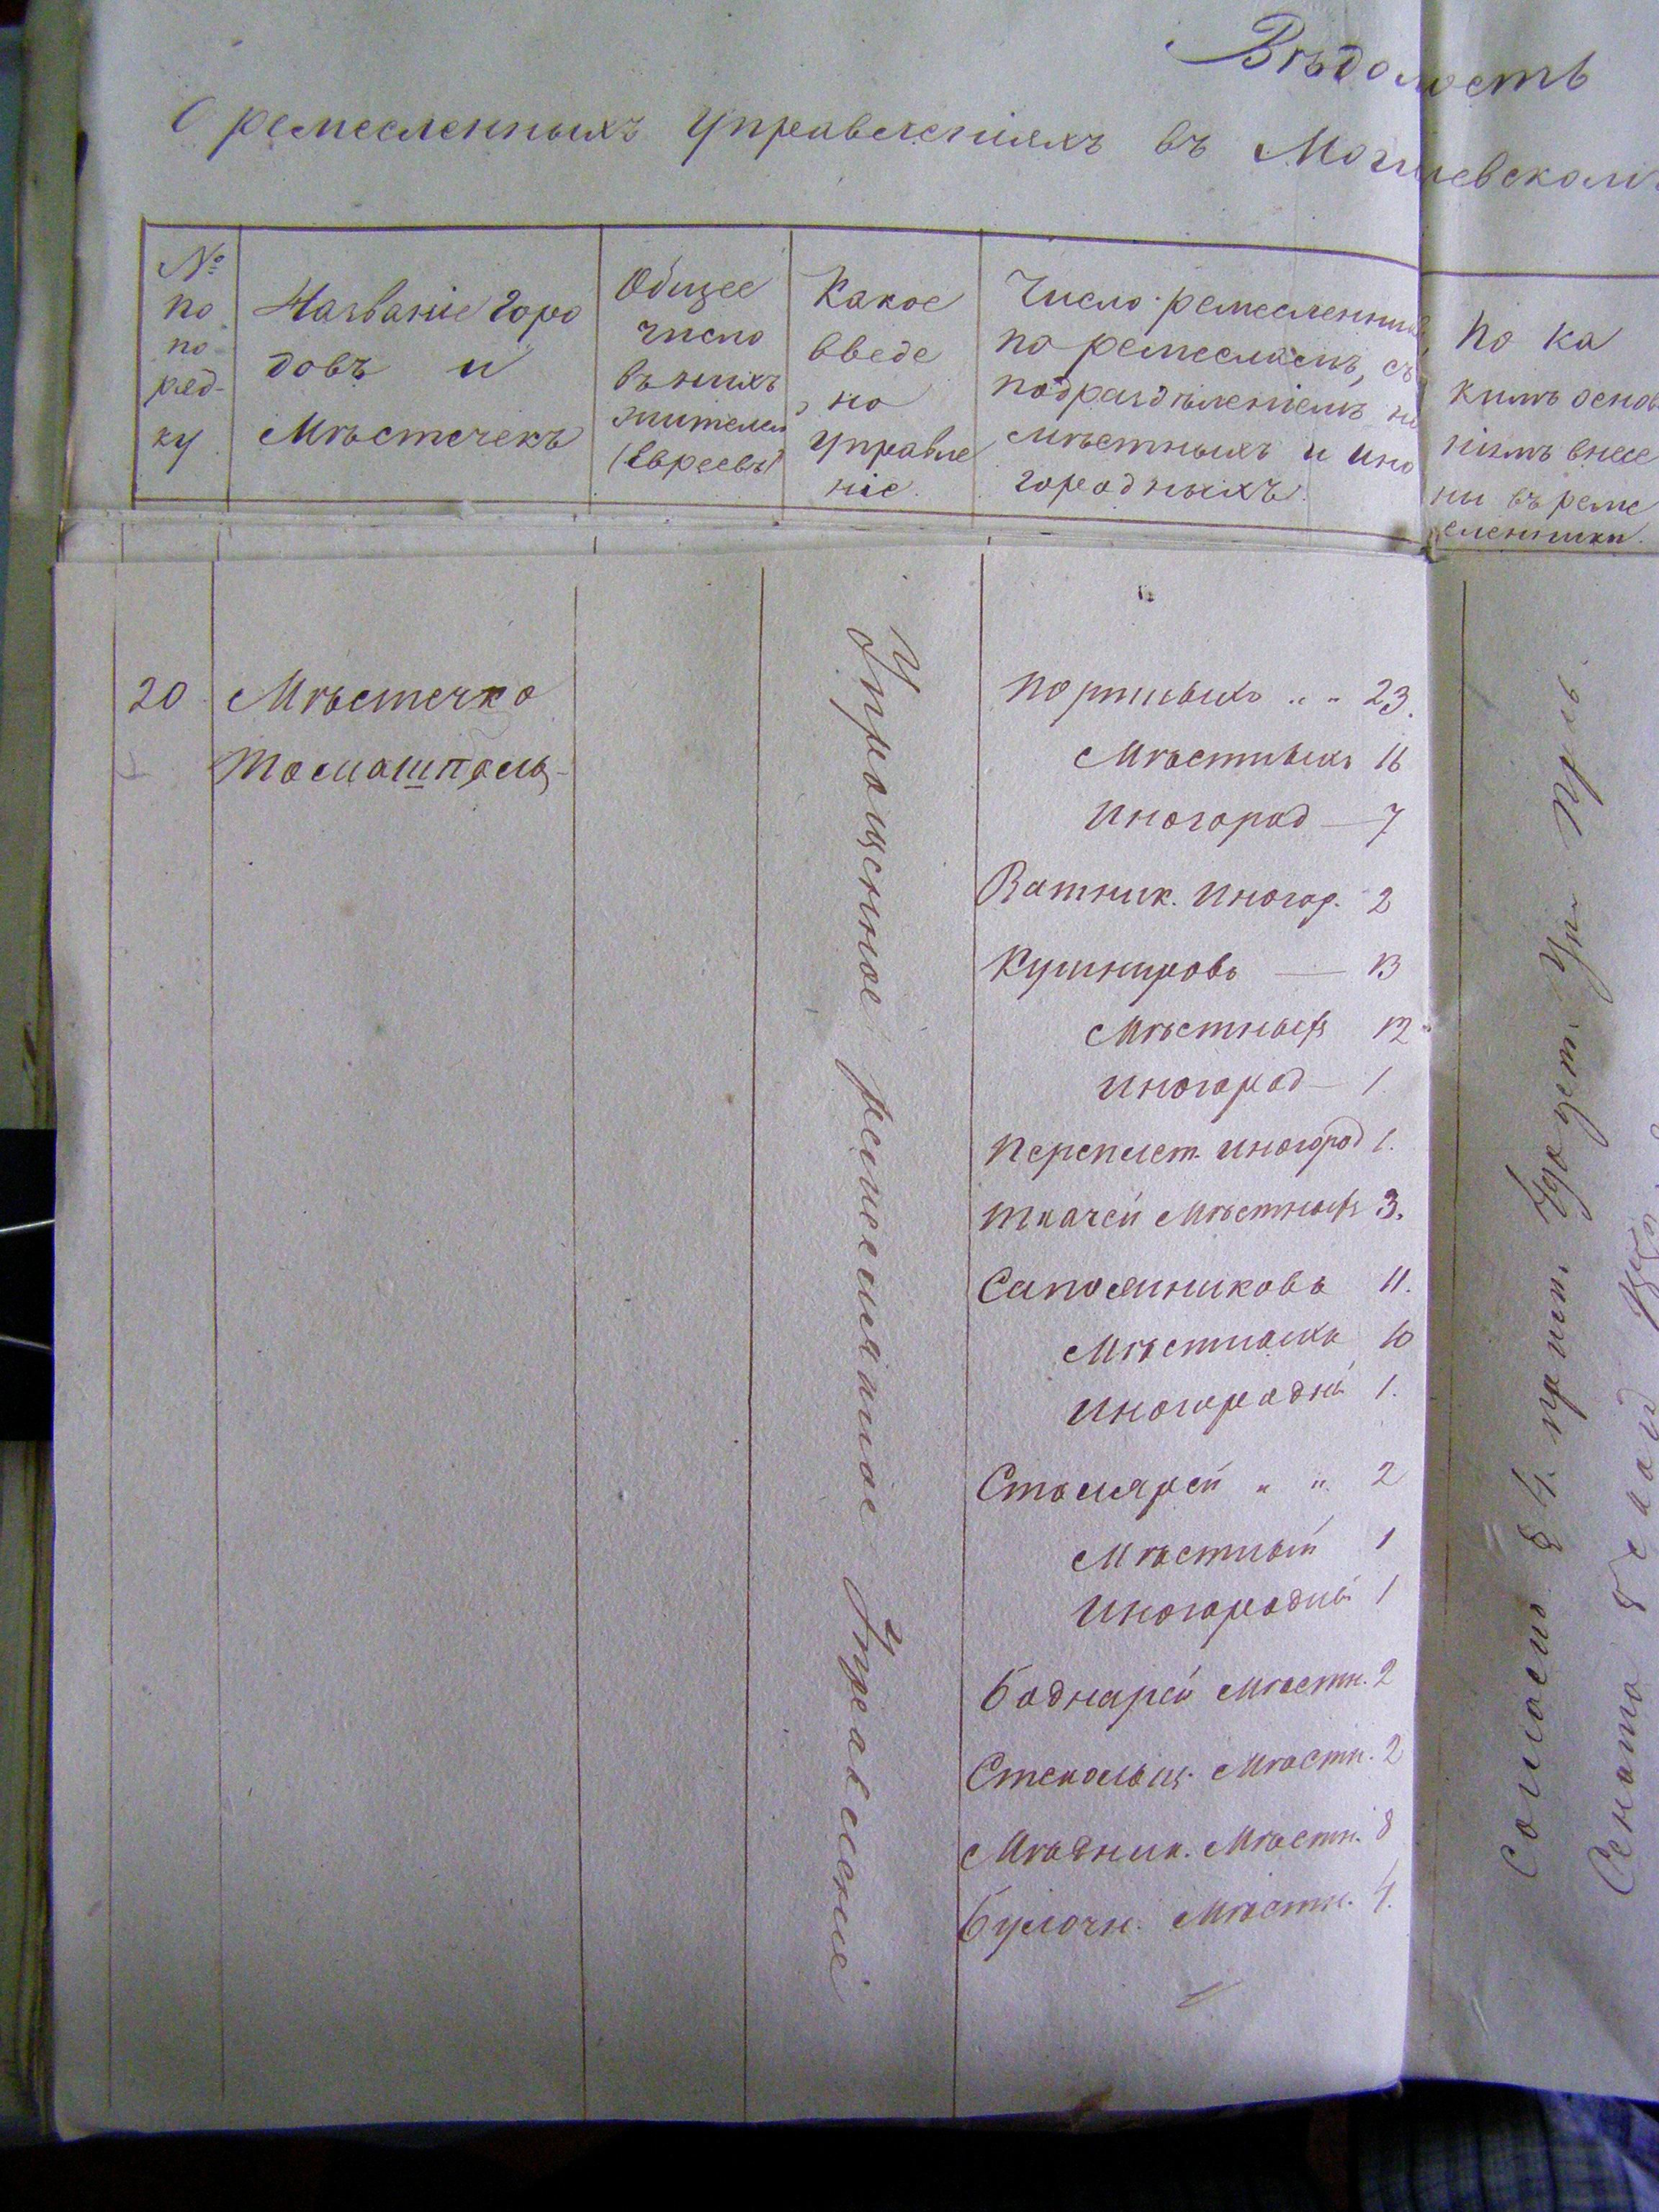 Вѣдомость
О ремесленныхъ управленіяхъ въ Могилевскомъ
№
по
по
ряд-
ку
Названіе горо
довъ и
Мѣстечекъ
Общее
число
въ нихъ
жителей
(Евреевъ)
Какое
введе
но
управле
ніе.
Число ремесленников
по ремесламъ, съ
подраздѣленіемъ на
мѣстныхъ и ино
городныхъ.
По ка
кимъ основа
ніямъ внесе
ны въ реме
сленники.
20
Мѣстечко
Томашполь
Упрощенное ремесленное Управленіе
Портныхъ „ „ 23.
Мѣстныхъ 16
Иногород — 7
Ватник. Иногор. 2
Кушнировъ — 13
Мѣстныхъ 12
Иногород — 1
Переплет. иногород 1.
Ткачей Мѣстныхъ 3.
Сапожниковъ 11.
Мѣстныхъ 10
Иногородный 1.
Столярей „ „ 2
Мѣстный 1
Иногородный 1
Боднарей Мѣстн. 2
Стекольщ. Мѣстн. 2
Мѣдник. Мѣстн. 8
Булочн. Мѣстн. 4.
Согласно § 4. прит. Уп.
Сената